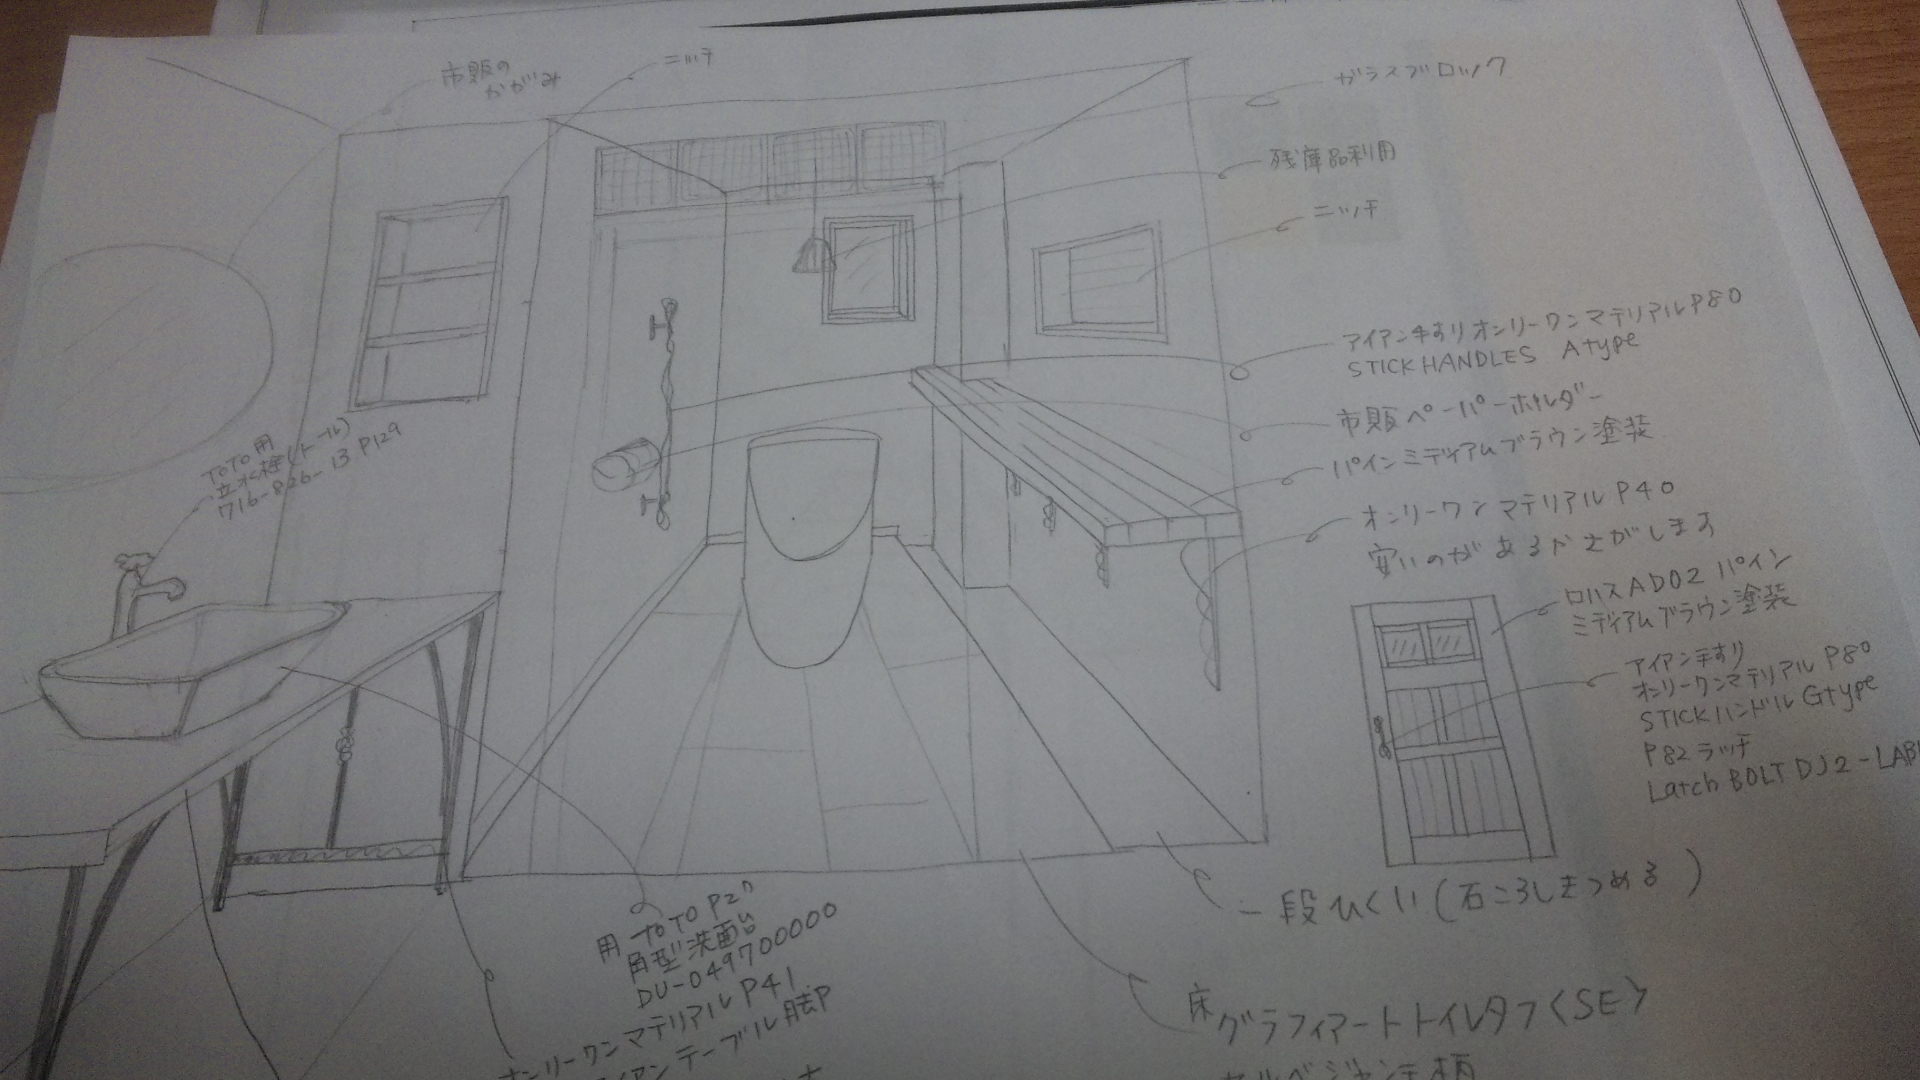 市販の
かがみ
ニッチ
ガラスブロック
残庫品利用
ニッチ
アイアン手すりオンリーワンマテリアルP80
STICK HANDLES Atype
市販ペーパーホルダー
パインミディアムブラウン塗装
オンリーワンマテリアルP40
安いのがあるかさがします
ロハスAD02 パイン
ミディアムブラウン塗装
アイアン手すり
オンリーワンマテリアル P80
STICKハンドル Gtype
P82 ラッチ
Latch BOLT DJ2-LAB
一段ひくい(石ころしきつめる)
床
グラフィアートトイレタフ<SE>
TOTO用
立水栓(トール)
716-826-13 P129
用 TOTO
角型洗面台
DU-049700000
オンリーワンマテリアル P41
アンテーブル脚P